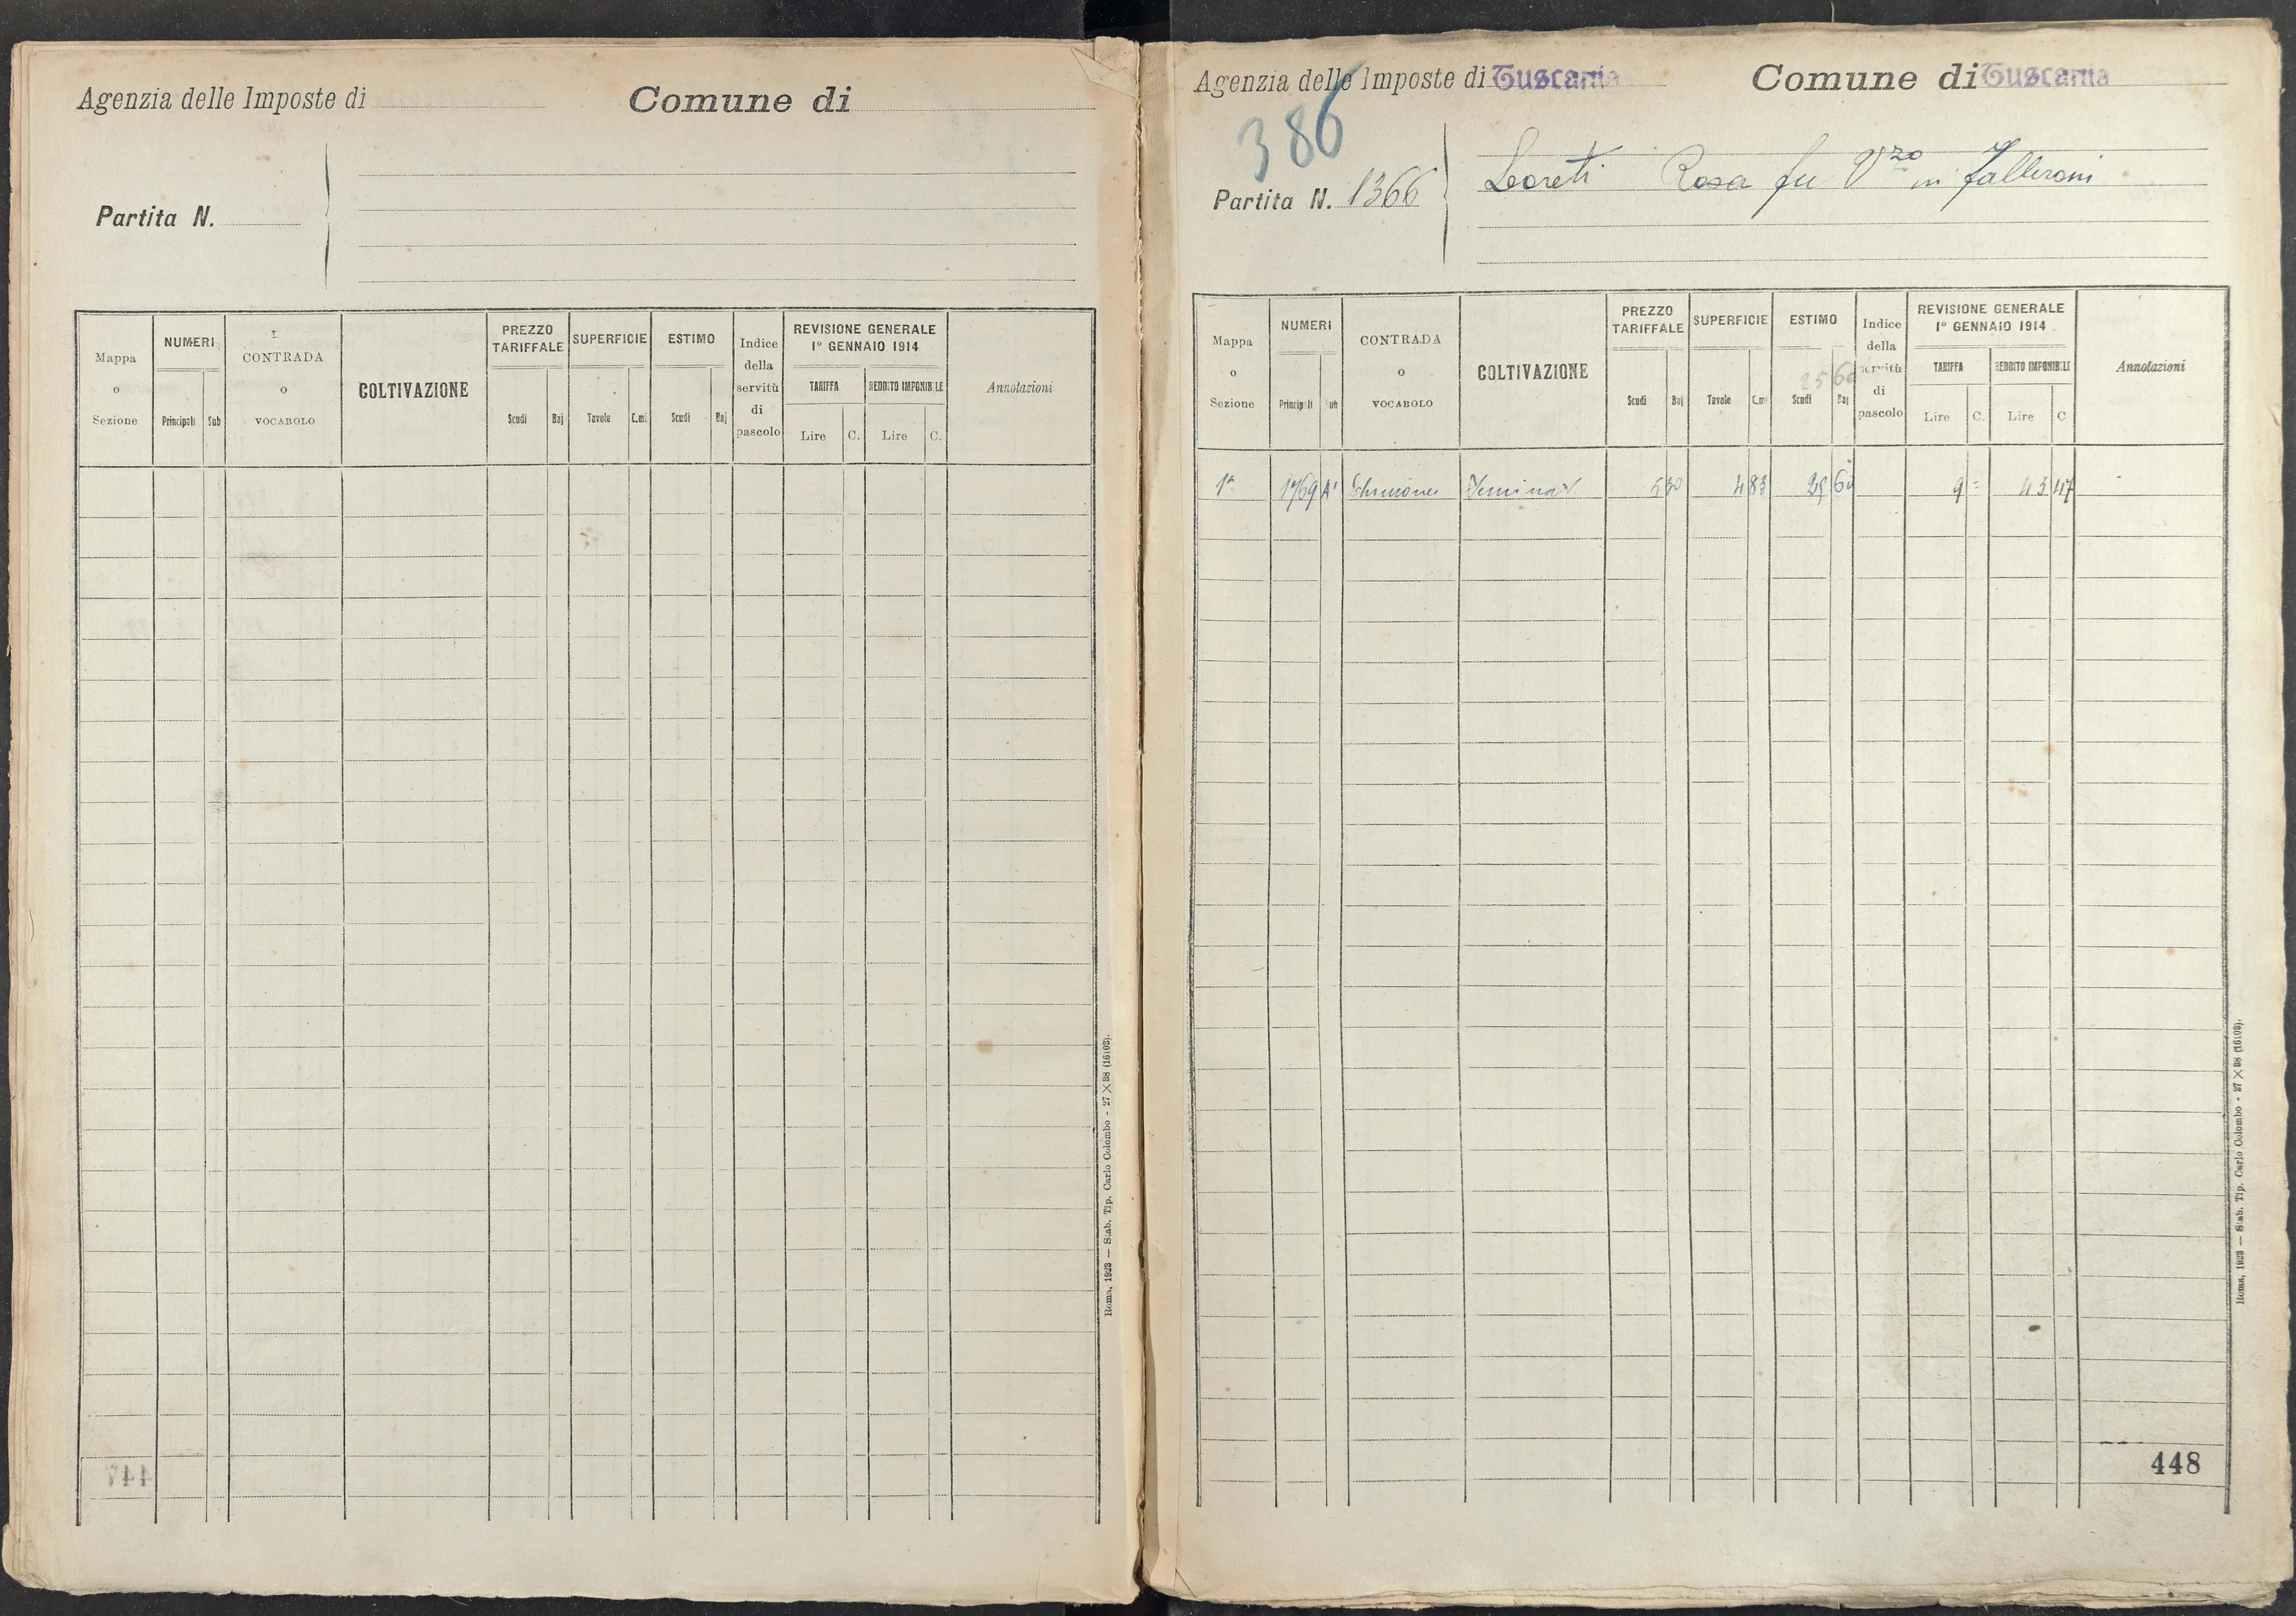 Agenzia delle Imposte di
Comune di
Partita N.
Mappa o Sezione
NUMERI
Principali
Sub
CONTRADA o VOCABOLO
COLTIVAZIONE
PREZZO TARIFFALE
Scudi
Baj
SUPERFICIE
Tavole
C.mi
ESTIMO
Scudi
Baj
Indice della servitù di pascolo
REVISIONE GENERALE
1º GENNAIO 1914
TARIFFA
REDDITO IMPONIBILE
Lire
C.
Lire
C.
Annotazioni
447
Roma, 1923 — Stab. Tip. Carlo Colombo - 27 X 38 (16103).
Agenzia delle Imposte di Tuscania
Comune di Tuscania
386
Partita N. 1366
Rosa fu Vzo in
Mappa o Sezione
NUMERI
Principali
Sub
CONTRADA o VOCABOLO
COLTIVAZIONE
PREZZO TARIFFALE
Scudi
Baj
SUPERFICIE
Tavole
C.mi
ESTIMO
25 60
Scudi
Baj
Indice della servitù di pascolo
REVISIONE GENERALE
1º GENNAIO 1914
TARIFFA
REDDITO IMPONIBILE
Lire
C.
Lire
C
Annotazioni
1ª 1769 5 30 4 83 25 60 9 = 43 47
448
Roma, 1923 — Stab. Tip. Carlo Colombo - 27 X 38 (16103).